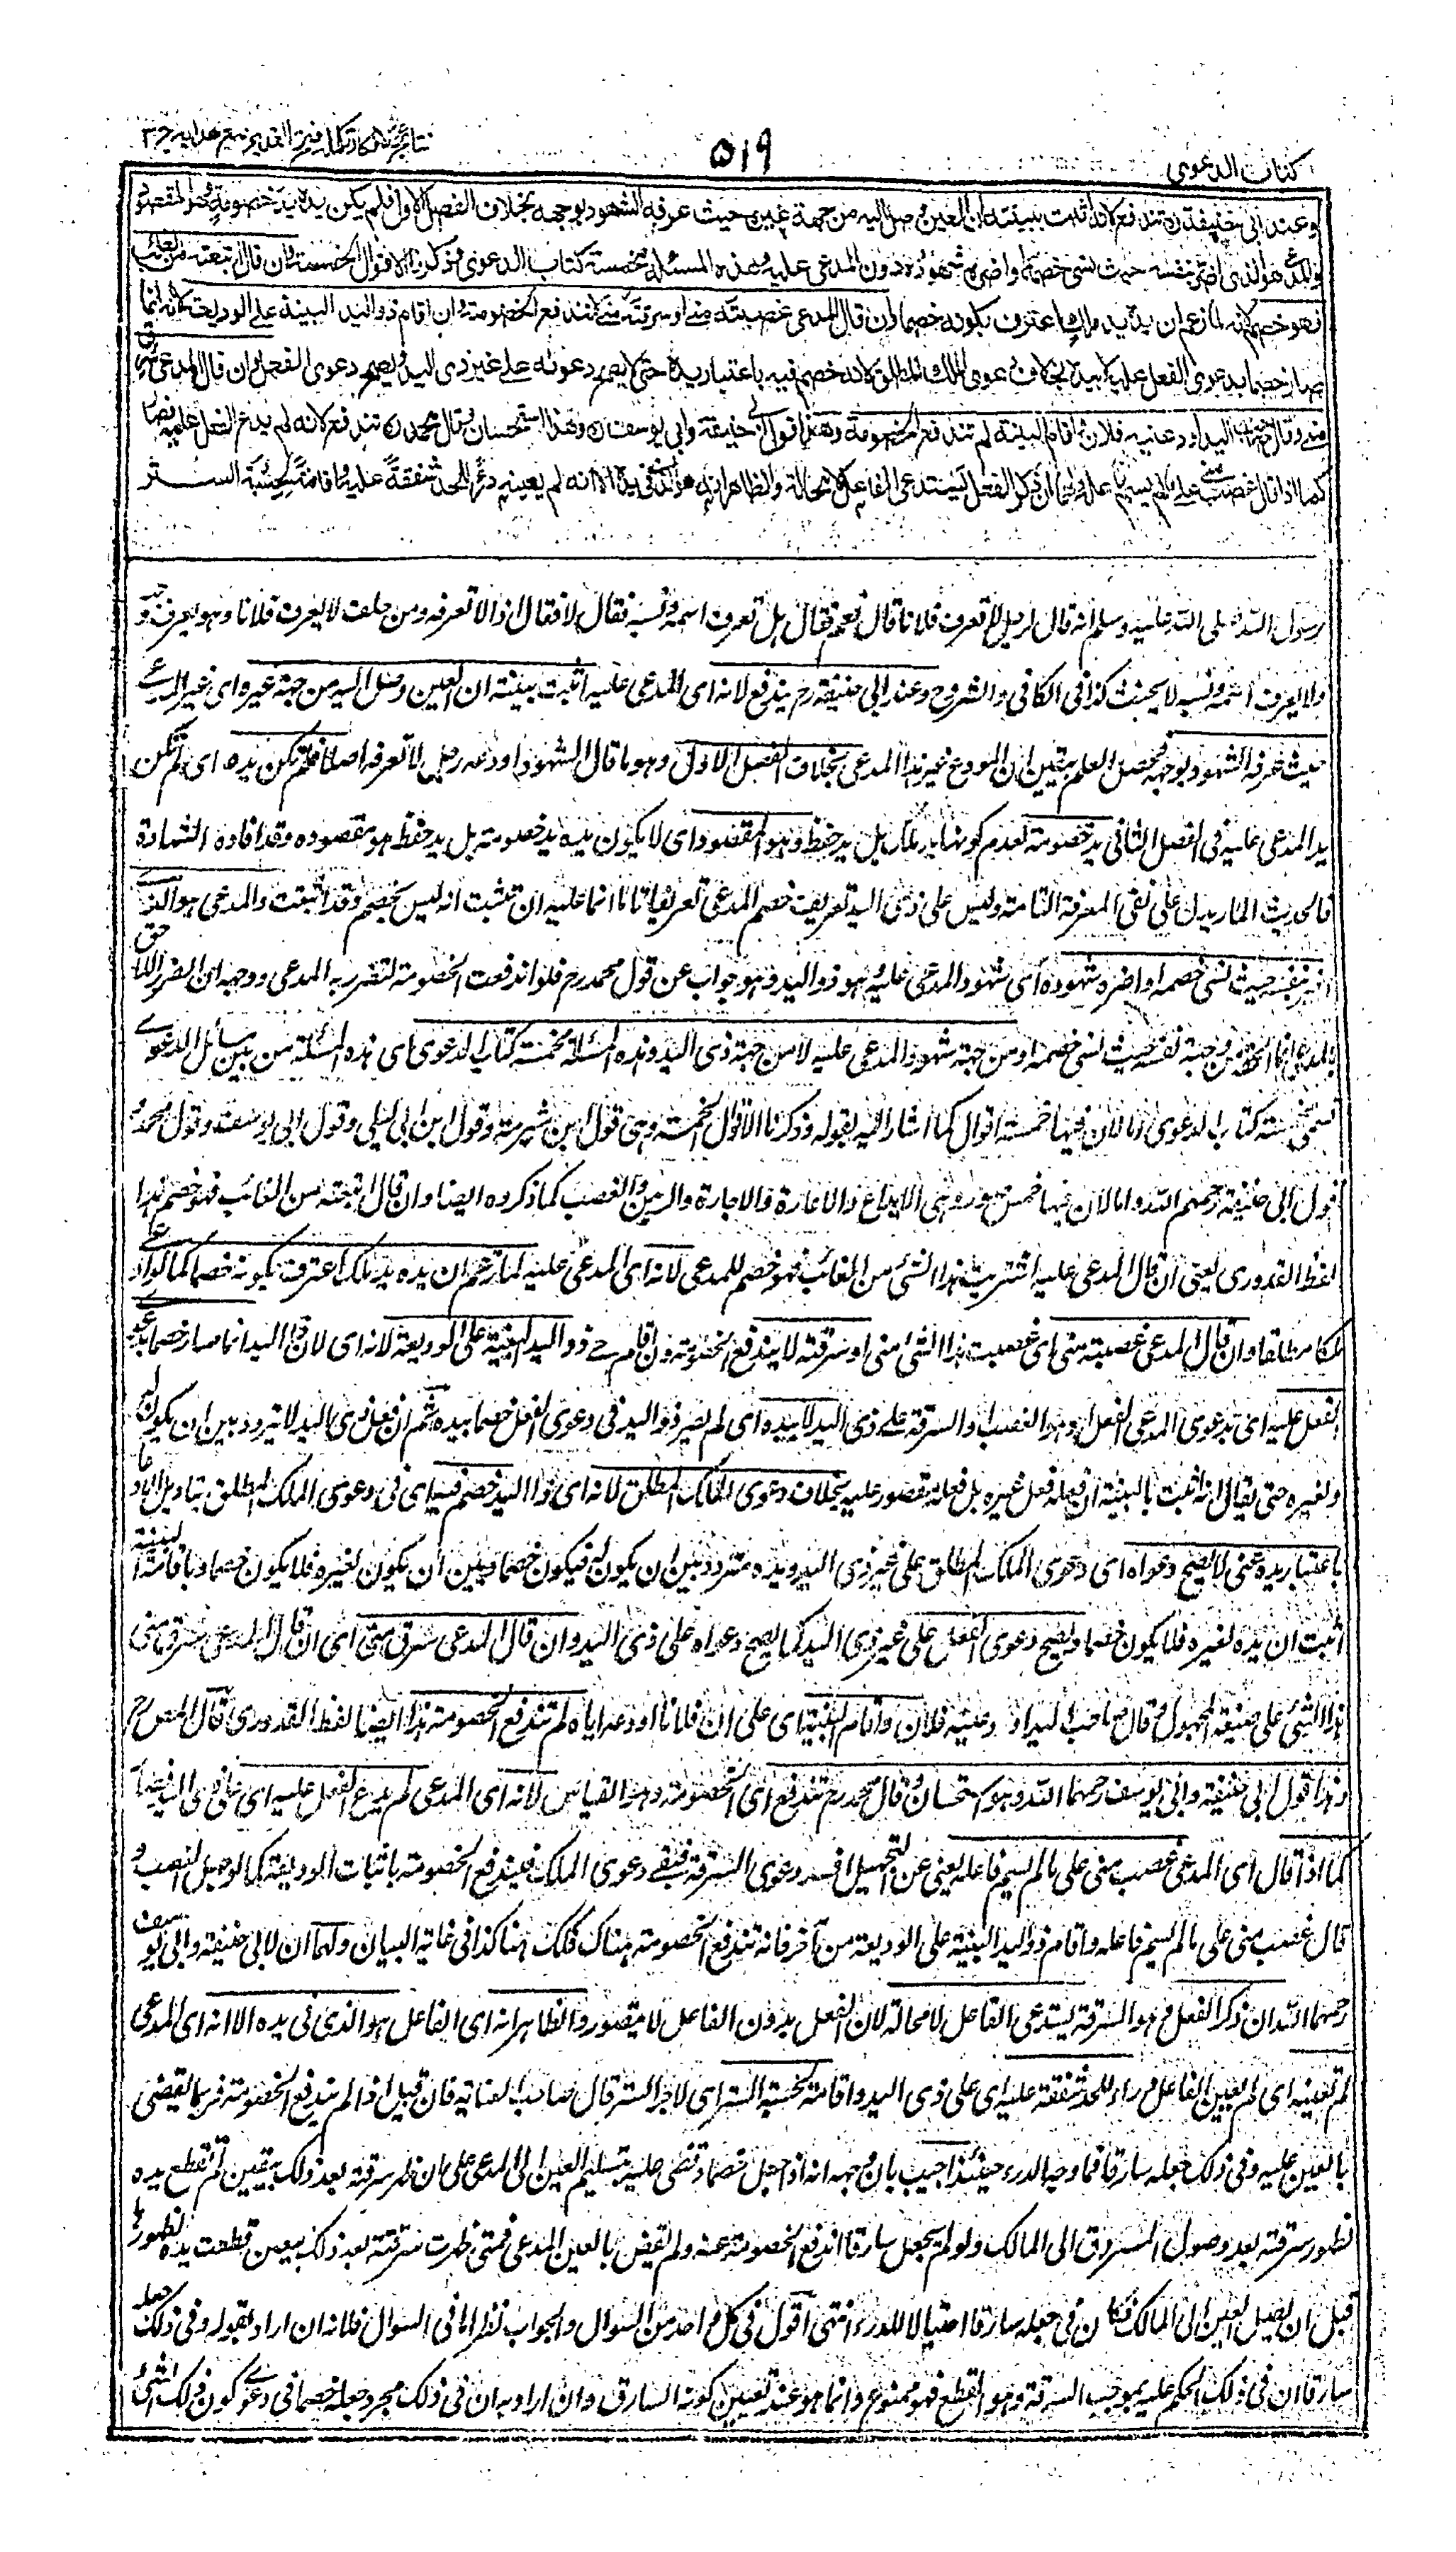 كتاب الدعوى
٥١٩
نتائج الافكار تكمله فتح القدير مع هدايه ج ٣
وعند ابى حنيفة رہ تندفع لانه اثبت ببينته ان العين وصل اليه من جهة غيره حيث عرفه الشهود بوجهه بخلاف الفصل الاول فلم يكن يده يد خصومة وهو المقصود
والمدعى هو الذى اضر بنفسه حيث نسى خصمه او اضره شهوده دون المدعى عليه وهذه المسئلة مخمسة كتاب الدعوى وذكرنا الاقوال الخمسة وان قال ابتعته من الغائب
فهو خصم لانه لما زعم ان يده يد ملك اعترف بكونه خصما وان قال المدعى غصبته منى او سرقته منى لا تندفع الخصومة وان اقام ذو اليد البينة على الوديعة لانه انما
صار خصما بدعوى الفعل عليه لا بيده بخلاف دعوى الملك المطلق لانه خصم فيه باعتبار يده حتى لا يصح دعوته على غير ذى اليد ويصح دعوى الفعل وان قال المدعى سرق
منى وقال صاحب اليد اودعنيه فلان واقام البينة لم تندفع الخصومة وهذا قول ابى حنيفة وابى يوسف رہ وهذا استحسان وقال محمد رہ تندفع لانه لم يدع الفعل عليه فصار
كما اذا قال غصب منى على ما لم يسم فاعله ولهما ان ذكر الفعل يستدعى الفاعل لا محالة والظاهر انه هو الذى فى يده الا انه لم يعينه درءا للحد شفقة عليه واقامة لحسبة الستر
رسول اللہ صلى اللہ عليہ وسلم انہ قال لرجل اتعرف فلانا قال نعم فقال ہل تعرف اسمہ ونسبہ فقال لا فقال اذا لا تعرفہ ومن حلف لا يعرف فلانا وہو يعرف وجہہ
ولا يعرف اسمہ ونسبہ لا يحنث كذا فى الكافى والشروح وعند ابى حنيفة رح يندفع لانہ اى المدعى عليہ اثبت ببينتہ ان العين وصل اليہ من جہة غيرہ اى غير المدعى
حيث عرفہ الشہود بوجہہ فحصل العلم بيقين ان المودع غير ہذا المدعى بخلاف الفصل الاول وہو ما قال الشہود اودعہ رجل لا نعرفہ اصلا فلم تكن يدہ اى لم تكن
يد المدعى عليہ فى الفصل الثانى يد خصومة لعدم كونہا يد ملك بل يد حفظ وہو المقصود اى لا يكون يدہ يد خصومة بل يد حفظ ہو مقصودہ وقد افادہ الشہادة
فالحديث المار يدل على نفى المعرفة التامة وليس على ذى اليد تعريف خصم المدعى تعريفا تاما انما عليہ ان تثبت انہ ليس بخصم وقد اثبت والمدعى ہو الذى
اضر بنفسہ حيث نسى خصمہ او اضرہ شہودہ اى شہود المدعى عليہ ہو ذو اليد وہو جواب عن قول محمد رح فلو اندفعت الخصومة لتضرر بہ المدعى ووجہہ ان الضرر اللاحق
بالمدعى انما لحقہ من جہة نفسہ حيث نسى خصمہ او من جہة شہودہ والمدعى عليہ لا من جہة ذى اليد وہذہ المسئلة مخمسة كتاب الدعوى اى ہذہ المسئلة من بين مسائل الدعوى
تسمى مخمسة كتاب الدعوى اما لان فيہا خمسة اقوال كما اشار اليہ بقولہ وذكرنا الاقوال الخمسة وہى قول ابن شبرمة وقول ابن ابى ليلى وقول ابى يوسف وقول محمد و
قول ابى حنيفة رحمہم اللہ واما لان فيہا خمس صور وہى الايداع والاعارة والاجارة والرہن والغصب كما ذكروہ ايضا وان قال ابتعتہ من الغائب فہو خصم ہذا
لفظ القدورى يعنى ان قال المدعى عليہ اشتريت ہذا الشئ من الغائب فہو خصم للمدعى لانہ اى المدعى عليہ لما زعم ان يدہ يد ملك اعترف بكونہ خصما كما لو ادعى
ملكا مطلقا وان قال المدعى غصبتہ منى اى غصبت ہذا الشئ منى او سرقتہ لا يندفع الخصومة وان اقام ذو اليد البينة على الوديعة لانہ اى لان ذا اليد انما صار خصما بدعوى
الفعل عليہ اى بدعوى المدعى الفعل وہو الغصب او السرقة على ذى اليد لا بيدہ اى لم يصر ذو اليد فى دعوى الفعل خصما بيدہ ثم ان فعل ذى اليد لا يتردد بين ان يكون لہ
ولغيرہ حتى يقال انہ اثبت بالبينة ان فعلہ فعل غيرہ بل فعلہ مقصور عليہ بخلاف دعوى الملك المطلق لانہ اى ذا اليد خصم فيہ اى فى دعوى الملك المطلق
باعتبار يدہ حتى لا يصح دعواہ اى دعوى الملك المطلق على غير ذى اليد ويدہ متردد بين ان يكون لہ فيكون خصما وبين ان يكون لغيرہ فلا يكون خصما وباقامة البينة
اثبت ان يدہ لغيرہ فلا يكون خصما ويصح دعوى الفعل على غير ذى اليد كما يصح دعواہ على ذى اليد وان قال المدعى سرق منى اى ان قال المدعى سرق منى
ہذا الشئ على صيغة المجہول وقال صاحب اليد اودعنيہ فلان واقام البينة اى على ان فلانا اودعہ اياہ لم تندفع الخصومة ہذا ايضا لفظ القدورى قال المص رح
وہذا قول ابى حنيفة وابى يوسف رحمہما اللہ وہو استحسان وقال محمد رح تندفع اى الخصومة وہو القياس لانہ اى المدعى لم يدع الفعل عليہ اى على ذى اليد فصار
كما اذا قال اى المدعى غصب منى على ما لم يسم فاعلہ يعنى عن التجہيل افسد دعوى السرقة فبقے دعوى الملك فيندفع الخصومة باثبات الوديعة كما لو جہل الغصب و
قال غصب منى على ما لم يسم فاعلہ واقام ذو اليد البينة على الوديعة من آخر فانہ تندفع الخصومة ہناك فكذلك ہنا كذا فى غاية البيان ولہما ان لابى حنيفة وابى يوسف
رحمہما اللہ ان ذكر الفعل وہو السرقة يستدعى الفاعل لا محالة لان الفعل بدون الفاعل لا يتصور والظاہر انہ اى الفاعل ہو الذى فى يدہ الا انہ اى المدعى
لم يعينہ اى لم يعين الفاعل درءا للحد شفقة عليہ اى على ذى اليد واقامة لحسبة الستر اى لاجر الستر قال صاحب العناية فان قيل اذا لم يندفع الخصومة فربما يقضى
بالعين عليہ وفى ذلك جعلہ سارقا فما وجہ الدرء حينئذ اجيب بان وجہہ انہ اذا جعل خصما وقضى عليہ بتسليم العين الى المدعى على ان ظہر سرقتہ بعد ذلك بيقين لم تقطع يدہ
لظہور سرقتہ بعد وصول المسروق الى المالك ولو لم يجعل سارقا اندفع الخصومة عنہ ولم يقض بالعين للمدعى فمتى ظہرت سرقتہ بعد ذلك بيقين قطعت يدہ لظہورہا
قبل ان يصل العين الى المالك فكان فى جعلہ سارقا احتيالا للدرء انتہى اقول فى كل واحد من السوال والجواب نظر اما فى السوال فلانہ ان اراد بقولہ وفى ذلك جعلہ
سارقا ان فى ذلك الحكم عليہ بموجب السرقة وہو القطع فہو ممنوع وانما ہو عند تعيين كونہ السارق وان اراد بہ ان فى ذلك مجرد جعلہ خصما فى دعوے كون ذلك الشئ